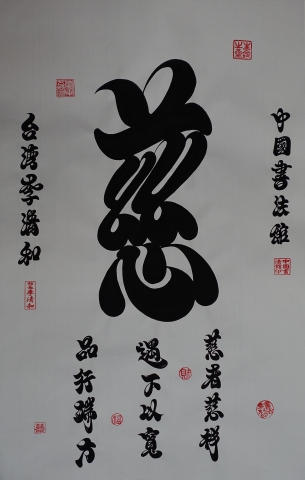 中國書法館
慈
慈眉慈祥
遇下以寬
品行端方
台灣李清和